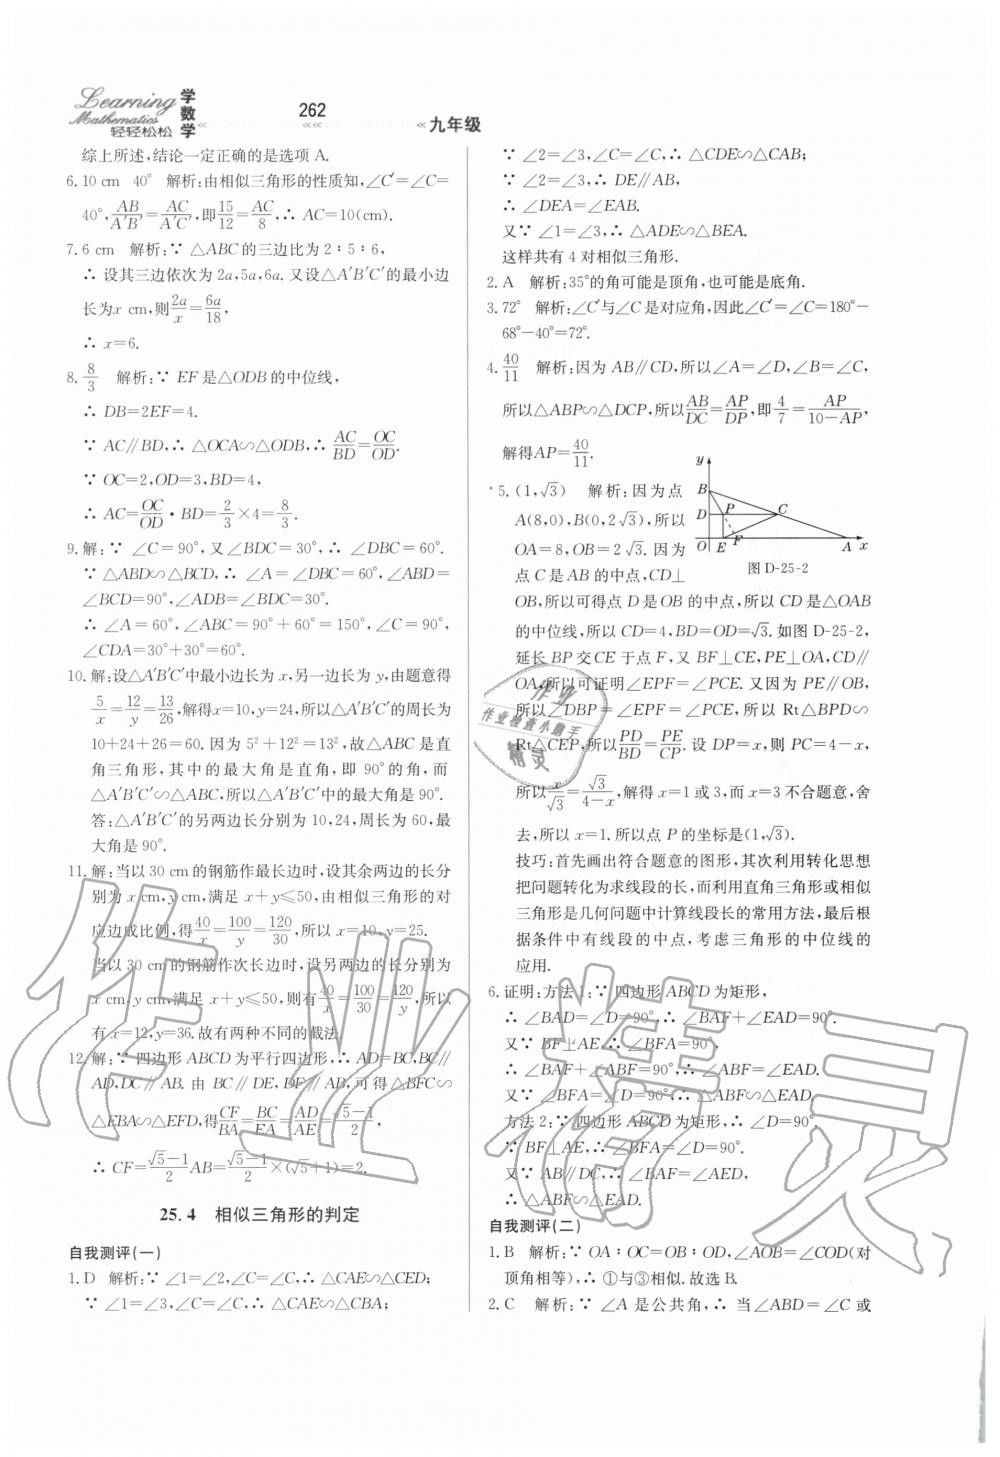 Learning
Mathematics
轻轻松松
学数学
262
九年级
综上所述,结论一定正确的是选项 A.
6.10 cm 40° 解析:由相似三角形的性质知,∠C′=∠C=
40°,AB/A′B′=AC/A′C′,即15/12=AC/8,∴ AC=10(cm).
7.6 cm 解析:∵ △ABC的三边比为2∶5∶6,
∴ 设其三边依次为2a,5a,6a.又设△A′B′C′的最小边
长为x cm,则2a/x=6a/18,
∴ x=6.
8.8/3 解析:∵ EF是△ODB的中位线,
∴ DB=2EF=4.
∵ AC∥BD,∴ △OCA∽△ODB,∴ AC/BD=OC/OD.
∵ OC=2,OD=3,BD=4,
∴ AC=OC/OD·BD=2/3×4=8/3.
9.解:∵ ∠C=90°,又∠BDC=30°,∴ ∠DBC=60°.
∵ △ABD∽△BCD,∴ ∠A=∠DBC=60°,∠ABD=
∠BCD=90°,∠ADB=∠BDC=30°.
∴ ∠A=60°,∠ABC=90°+60°=150°,∠C=90°,
∠CDA=30°+30°=60°.
10.解:设△A′B′C′中最小边长为x,另一边长为y,由题意得
5/x=12/y=13/26,解得x=10,y=24,所以△A′B′C′的周长为
10+24+26=60.因为5²+12²=13²,故△ABC是直
角三角形,其中的最大角是直角,即90°的角,而
△A′B′C′∽△ABC,所以△A′B′C′中的最大角是90°.
答:△A′B′C′的另两边长分别为10,24,周长为60,最
大角是90°.
11.解:当以30 cm的钢筋作最长边时,设其余两边的长分
别为x cm,y cm,满足x+y≤50,由相似三角形的对
应边成比例,得40/x=100/y=120/30,所以x=10,y=25.
当以30 cm的钢筋作次长边时,设另两边的长分别为
x cm,y cm,满足x+y≤50,则有40/x=100/30=120/y,所以
有x=12,y=36.故有两种不同的截法.
12.解:∵ 四边形ABCD为平行四边形,∴ AD=BC,BC∥
AD,DC∥AB.由BC∥DE,DF∥AB,可得△BFC∽
△EBA∽△EFD,得CF/BA=BC/EA=AD/AE=(√5-1)/2,
∴ CF=(√5-1)/2AB=(√5-1)/2×(√5+1)=2.
25.4 相似三角形的判定
自我测评(一)
1.D 解析:∵ ∠1=∠2,∠C=∠C,∴ △CAE∽△CED;
∵ ∠1=∠3,∠C=∠C,∴ △CAE∽△CBA;
∵ ∠2=∠3,∠C=∠C,∴ △CDE∽△CAB;
∵ ∠2=∠3,∴ DE∥AB,
∴ ∠DEA=∠EAB.
又∵ ∠1=∠3,∴ △ADE∽△BEA.
这样共有4对相似三角形.
2.A 解析:35°的角可能是顶角,也可能是底角.
3.72° 解析:∠C′与∠C是对应角,因此∠C′=∠C=180°-
68°-40°=72°.
4.40/11 解析:因为AB∥CD,所以∠A=∠D,∠B=∠C,
所以△ABP∽△DCP,所以AB/DC=AP/DP,即4/7=AP/(10-AP),
解得AP=40/11.
5.(1,√3) 解析:因为点
A(8,0),B(0,2√3),所以
OA=8,OB=2√3.因为
点C是AB的中点,CD⊥
y
B
D
P
C
O
E
F
A
x
图 D-25-2
OB,所以可得点D是OB的中点,所以CD是△OAB
的中位线,所以CD=4,BD=OD=√3.如图D-25-2,
延长BP交CE于点F,又BF⊥CE,PE⊥OA,CD∥
OA,所以可证明∠EPF=∠PCE.又因为PE∥OB,
所以∠DBP=∠EPF=∠PCE,所以Rt△BPD∽
Rt△CEP,所以PD/BD=PE/CP.设DP=x,则PC=4-x,
所以x/√3=√3/(4-x),解得x=1或3,而x=3不合题意,舍
去,所以x=1.所以点P的坐标是(1,√3).
技巧:首先画出符合题意的图形,其次利用转化思想
把问题转化为求线段的长,而利用直角三角形或相似
三角形是几何问题中计算线段长的常用方法,最后根
据条件中有线段的中点,考虑三角形的中位线的
应用.
6.证明:方法1:∵ 四边形ABCD为矩形,
∴ ∠BAD=∠D=90°,∴ ∠BAF+∠EAD=90°.
又∵ BF⊥AE,∴ ∠BFA=90°,
∴ ∠BAF+∠ABF=90°,∴ ∠ABF=∠EAD.
又∵ ∠BFA=∠D=90°,∴ △ABF∽△EAD.
方法2:∵ 四边形ABCD为矩形,∴ ∠D=90°.
∵ BF⊥AE,∴ ∠BFA=∠D=90°.
又∵ AB∥DC,∴ ∠BAF=∠AED,
∴ △ABF∽△EAD.
自我测评(二)
1.B 解析:∵ OA∶OC=OB∶OD,∠AOB=∠COD(对
顶角相等),∴ ①与③相似.故选B.
2.C 解析:∵ ∠A是公共角,∴ 当∠ABD=∠C或
作业
作业检查小助手
精灵
作业精灵